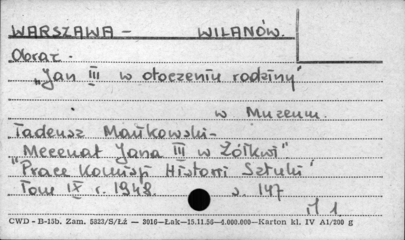 WARSZAWA - WILANÓW.
Obraz.
„Jan III w otoczeniu rodziny"
w Muzeum.
Tadeusz Mańkowski-
"Mecenat Jana III w Żółkwi"
"Prace Komisji Historii Sztuki"
Tom IX r. 1948. s. 147
il 1.
CWD - B-15b. Zam. 5823/S/Łż — 2016—Łak—15.11.56—4.000.000—Karton kl. IV A1/200 g